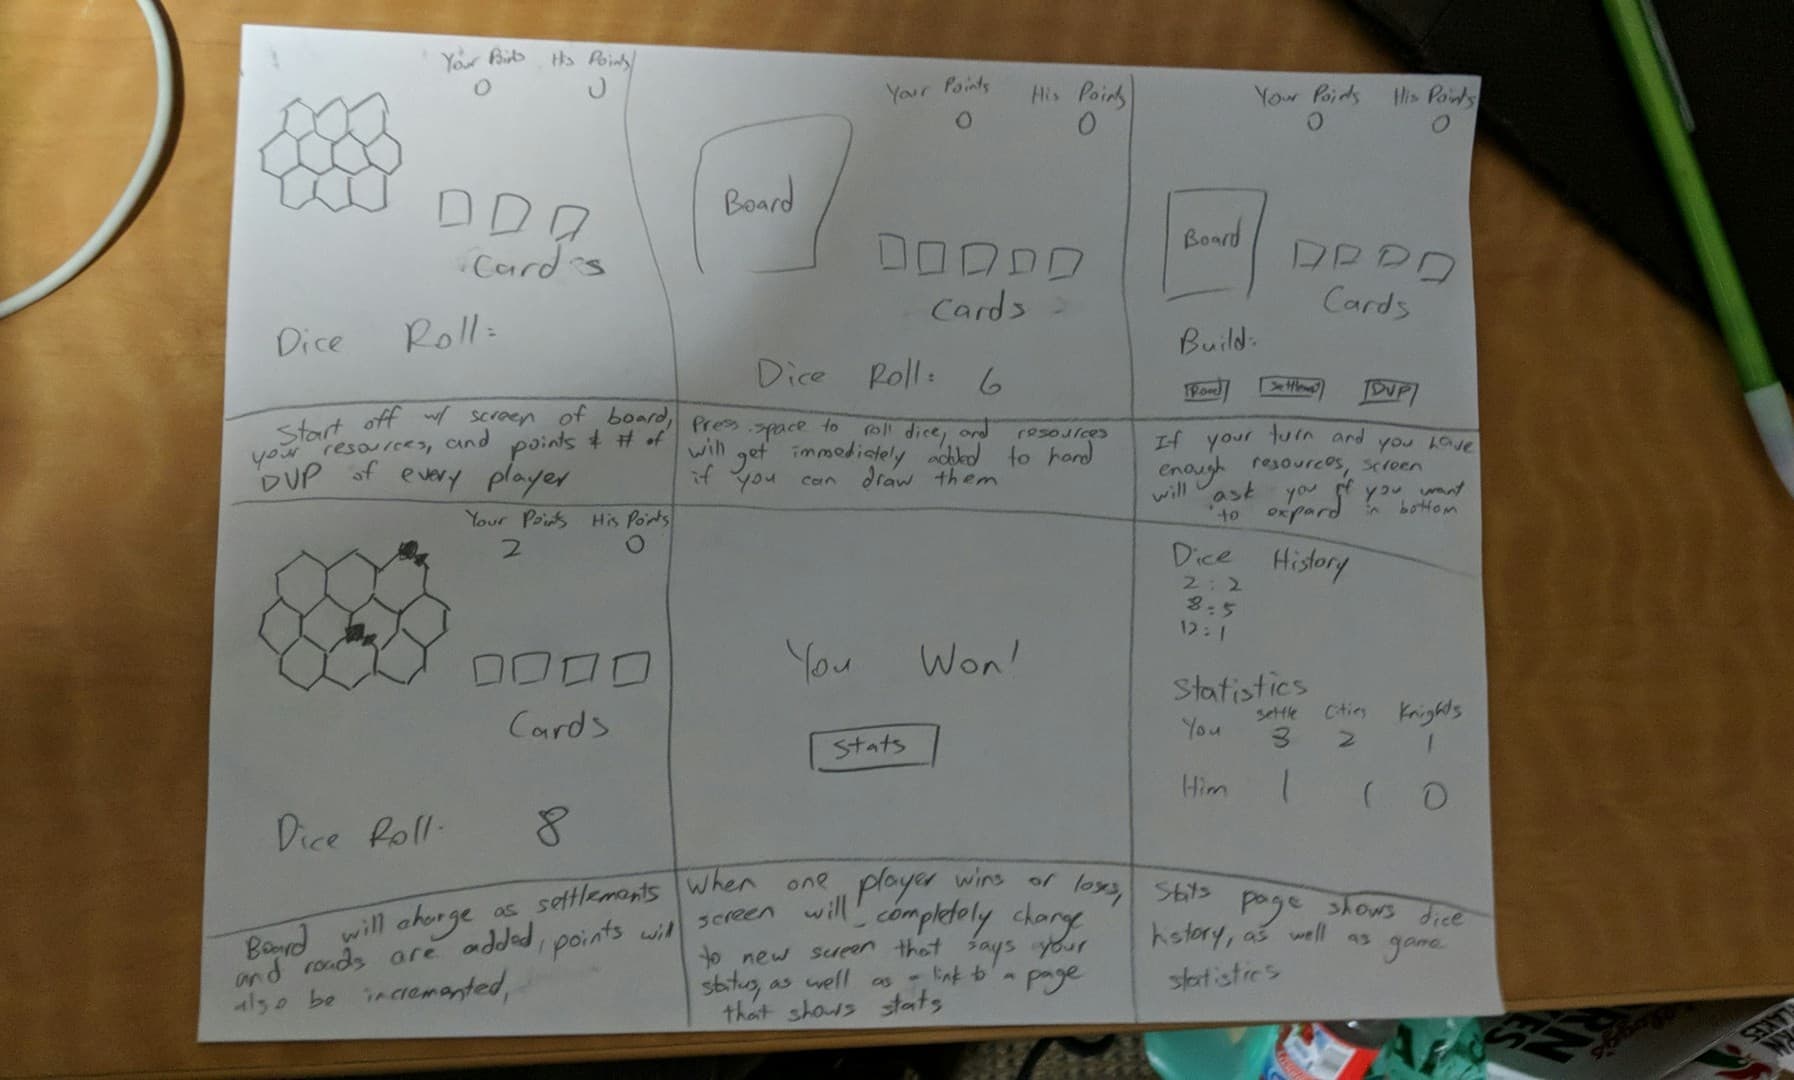 Your Points His Points
0 0
Cards
Dice Roll:
Start off w/ screen of board,
your resources, and points & # of
DVP of every player
Your Points His Points
0 0
Board
Cards
Dice Roll: 6
Press space to roll dice, and resources
will get immediately added to hand
if you can draw them
Your Points His Points
0 0
Board
Cards
Build:
Road Settlement DVP
If your turn and you have
enough resources, screen
will ask you if you want
to expand in bottom
Your Points His Points
2 0
Cards
Dice Roll: 8
Board will change as settlements
and roads are added, points will
also be incremented,
You Won!
Stats
When one player wins or loses,
screen will completely change
to new screen that says your
status, as well as a link to a page
that shows stats
Dice History
2 : 2
8 : 5
12 : 1
Statistics
Settle Cities Knights
You 3 2 1
Him 1 1 0
Stats page shows dice
history, as well as game
statistics